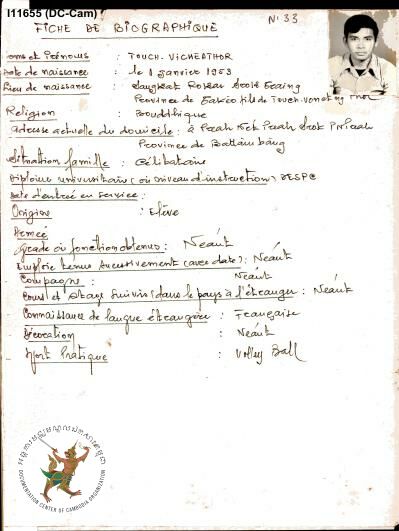 I11655 (DC-Cam)
N° 33
FICHE DE BIOGRAPHIQUE
Noms et Prénoms : TOUCH - VICHEATHOR
Date de naissance : le 1 Janvier 1953
Lieu de naissance : Sangkat Rokar Srok
Province de Takéo fils de Touch
Religion : Bouddhique
adresse actuelle du domicile : à Preah Net Preah Srok
Province de Battambang
Situation famille : Célibataire
Diplôme universitaire (où niveau d'instruction) DESPC
Date d'entrée en service :
Origine : Elève
Armée
Grade où fonction obtenus : Neánt
Emploie tenus successivement (avec date) : Neánt
Compagne : Neánt
Cours et stage suivis (dans le pays à l'étranger : Neánt
Connaissance de langue étrangère : Française
Décoration : Neánt
Sport Pratiqué : Volley Ball
DOCUMENTATION CENTER OF CAMBODIA ORGANIZATION